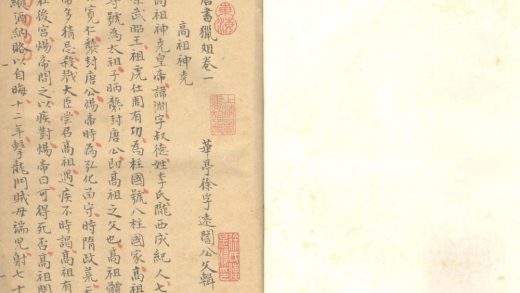 唐書獵俎卷一
華亭徐孚遠闇公父輯
高祖神堯
高祖神堯皇帝諱淵字叔德姓李氏隴西成紀人七
武昭王祖虎仕周有功為柱國號八柱國家高祖
尊號為太祖子昞襲封唐公即高祖之父也高祖體
寬仁襲封唐公煬帝時為弘化留守時隋政荒天
帝多猜忌殺戮大臣嘗召高祖遇疾不時謁高祖有
在後宮煬帝問之以疾對煬帝曰可得死否高祖聞
縱酒納賂以自晦十二年擊龍門賊母端兒射七十